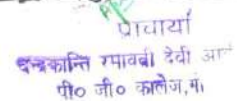 प्राचार्या
चन्द्रकान्ति रमावती देवी आर्य
पी० जी० कालेज,